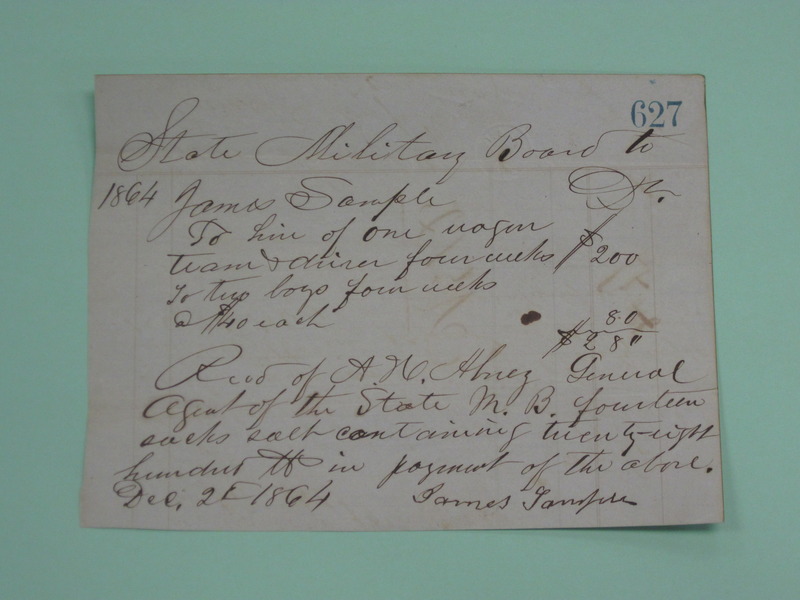 627
State Military Board to
1864 James Sample Dr.
To hire of one wagon
team & driver four weeks $200
To two boys four weeks
a $40 each 80
$280
Recd of A. H. Abney General
Agent of the State M. B. fourteen
sacks salt containing twenty-eight
hundred lb in payment of the above.
Dec. 2d 1864 James Sample